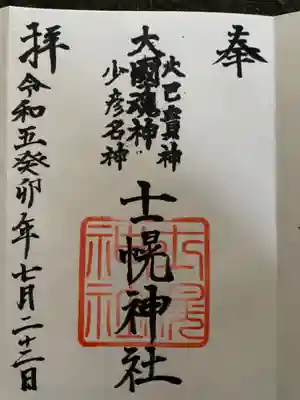 奉
大己貴神
大國魂神
少彦名神
士幌神社
拝
令和五癸卯年七月二十三日
士幌神社